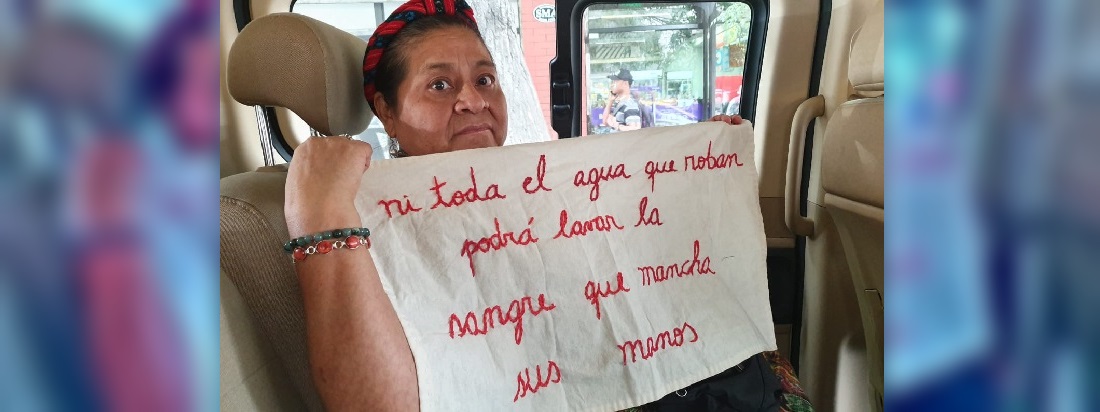 ni toda el agua que roban
podrá lavar la
sangre que mancha
sus manos